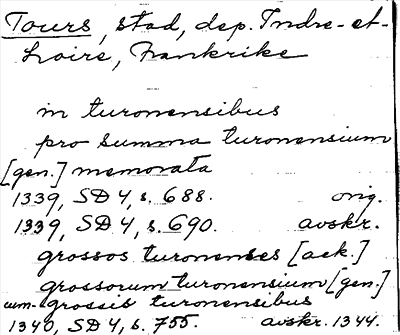 Tours, stad, dep. Indre-et-
Loire, Frankrike
in turonensibus
pro summa turonensium
[gen.] memorata
1339, SD 4, s. 688. orig.
1339, SD 4, s. 690. avskr.
grossos turonenses [ack.]
grossorum turonensium [gen.]
cum grossis turonensibus
1340, SD 4, s. 755. avskr. 1344.